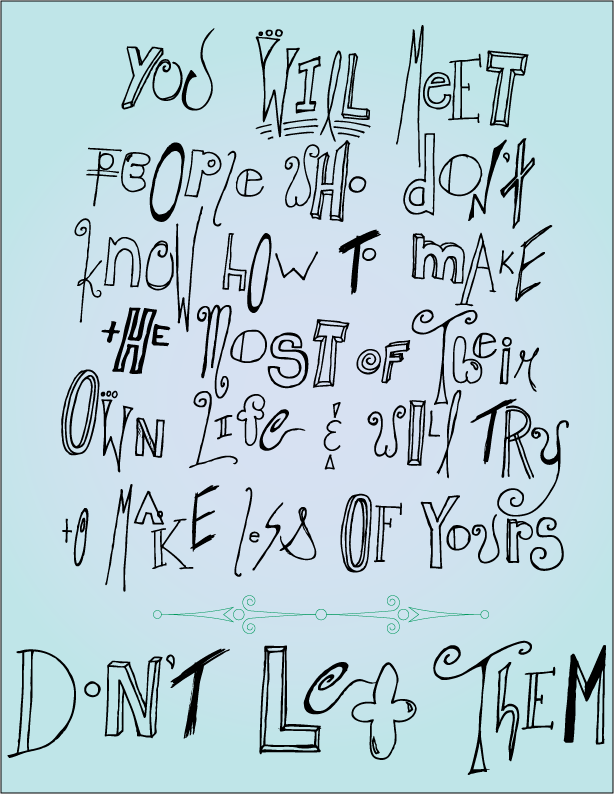 You Will Meet
People who don't
know how to make
the Most of Their
Own Life & will TRy
to MAKE less OF Yours
DoN'T Let THEM